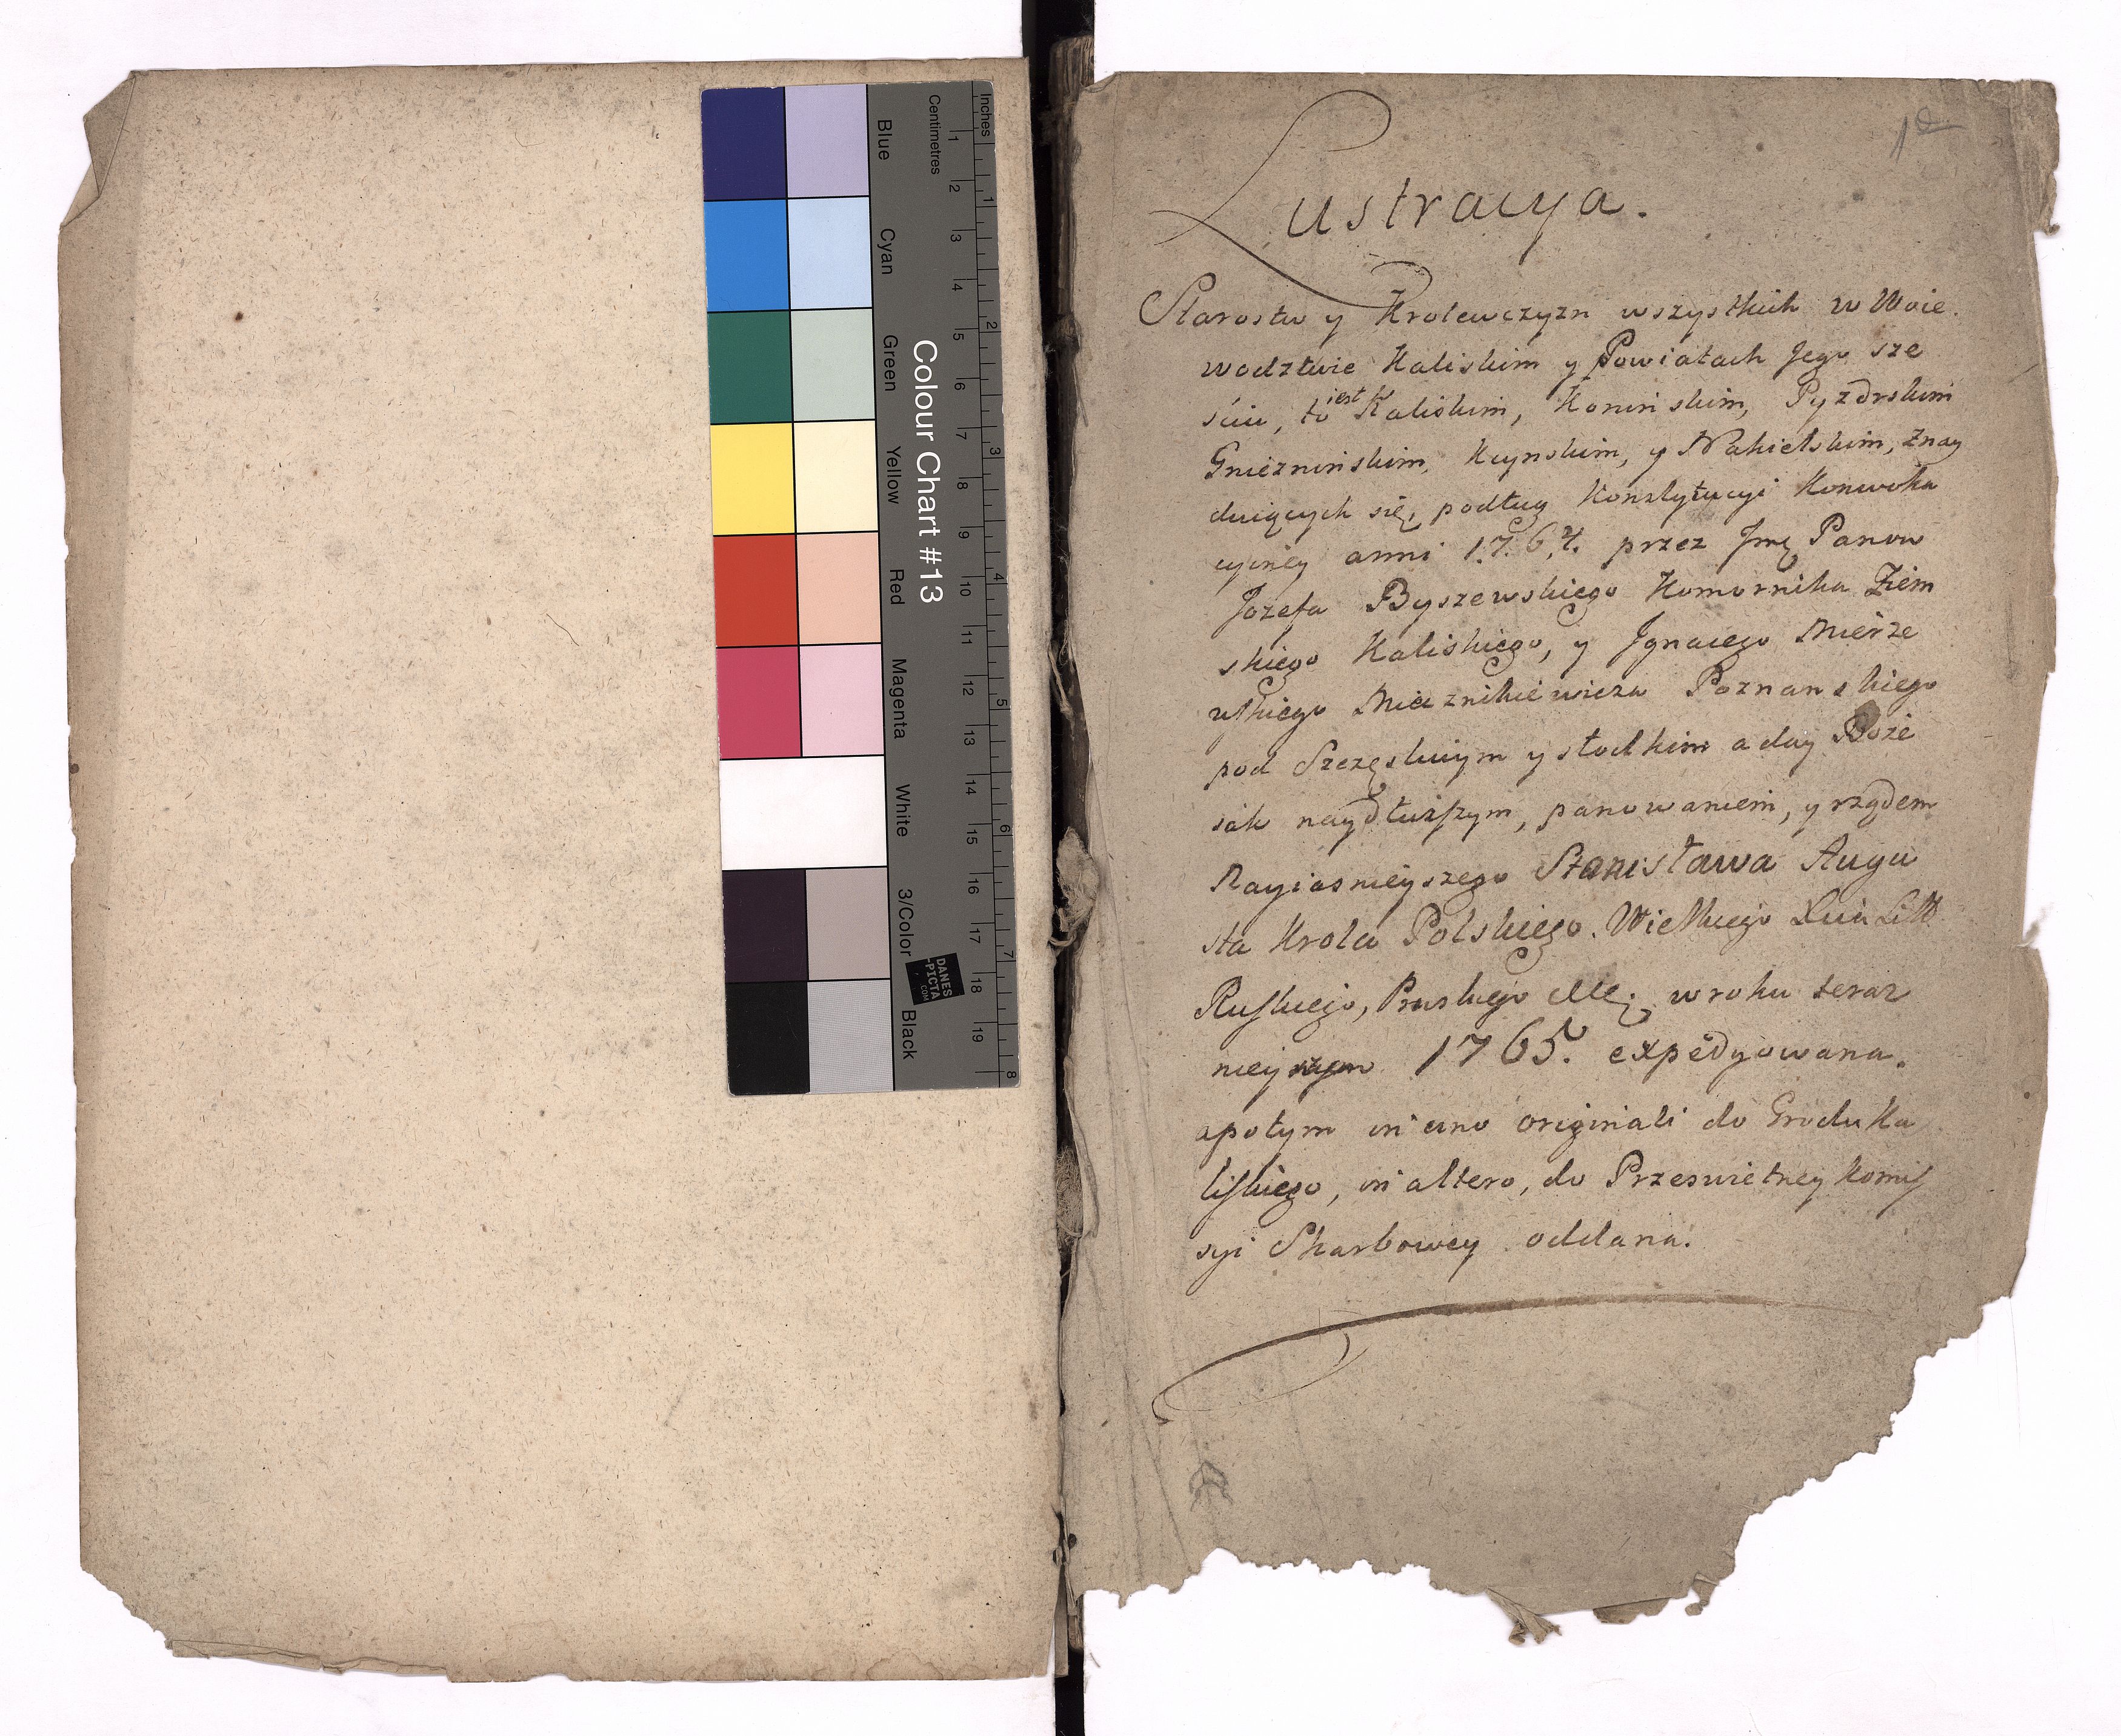 Inches
Centimetres
Colour Chart #13
Blue
Cyan
Green
Yellow
Red
Magenta
White
3/Color
Black
DANES
-PICTA
.COM
1
Lustracya.
Starostw y Krolewczyzn wszystkich w Woie
wodztwie Kaliskim y Powiatach Jego sze
sciu, to iest Kaliskim, Koninskim, Pyzdrskim
Gnieznińskim, Kcynskim, y Nakielskim, znay
duiących się, podług Konstytucyi Konwoka
cyiney anni 1764. przez Jmę Panow
Jozefa Byszewskiego Komornika Ziem
skiego Kaliskiego, y Ignacego Mierze
wskiego Miecznikiewicza Poznanskiego
pod Szczęsliwym y słodkim a day Boże
iak naydłuższym, panowaniem, y rządem
Nayiasnieyszego Stanisława Augu
sta Krola Polskiego. Wielkiego Xcia Litt
Ruskiego, Pruskiego etc. w roku teraz
nieyszym 1765. expedyowana.
apotym in uno originali do Grodu Ka
liskiego, in altero, do Przeswietney Komis
syi Skarbowey oddana.